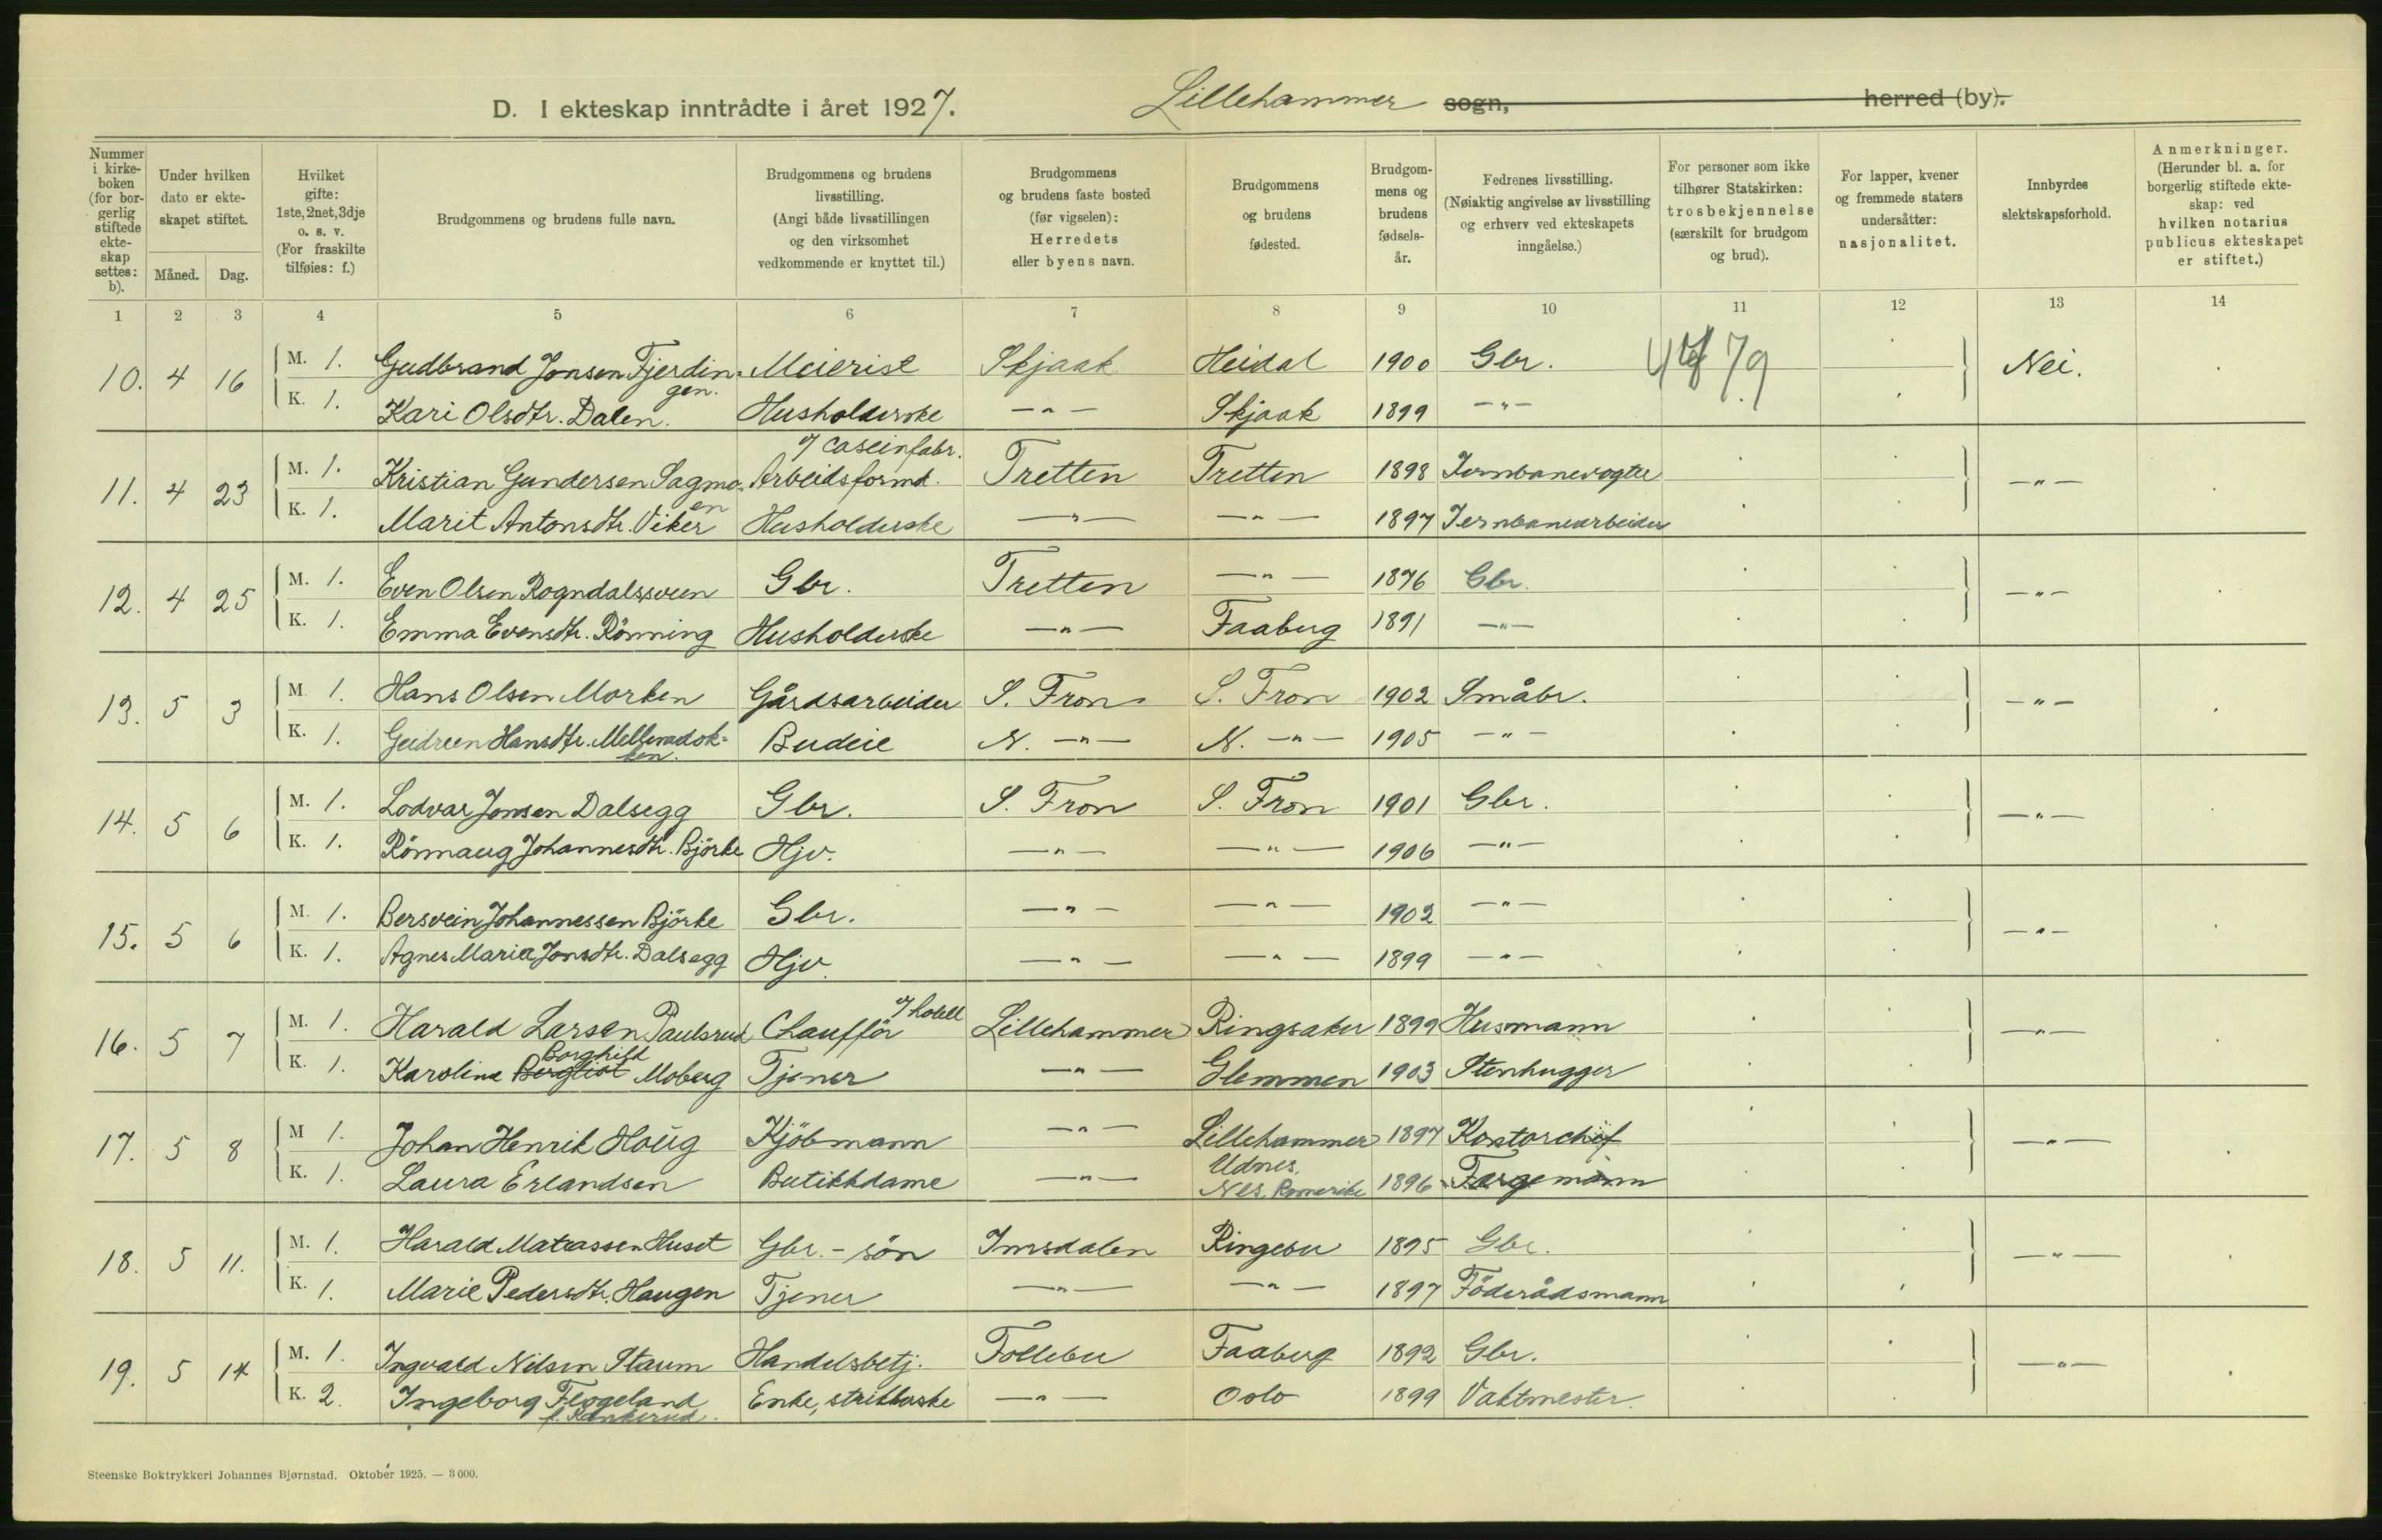 D. I ekteskap inntrådte i året 1927. Lillehammer sogn, herred (by).
Nummer i kirkeboken (for borgerlig stiftede ekteskap settes: b).
Under hvilken dato er ekteskapet stiftet.
Måned. Dag.
Hvilket gifte: 1ste, 2net, 3dje o. s. v. (For fraskilte tilføies: f.)
Brudgommens og brudens fulle navn.
Brudgommens og brudens livsstilling. (Angi både livsstillingen og den virksomhet vedkommende er knyttet til.)
Brudgommens og brudens faste bosted (før vigselen): Herredets eller byens navn.
Brudgommens og brudens fødested.
Brudgommens og brudens fødselsår.
Fedrenes livsstilling. (Nøiaktig angivelse av livsstilling og erhverv ved ekteskapets inngåelse.)
For personer som ikke tilhører Statskirken: trosbekjennelse (særskilt for brudgom og brud).
For lapper, kvener og fremmede staters undersåtter: nasjonalitet.
Innbyrdes slektskapsforhold.
Anmerkninger. (Herunder bl. a. for borgerlig stiftede ekteskap: ved hvilken notarius publicus ekteskapet er stiftet.)
1 2 3 4 5 6 7 8 9 10 11 12 13 14
10. 4 16 M. 1. Gudbrand Jonsen Fjerdingen. Meierist Skjaak Heidal 1900 Gbr. 79 Nei.
K. 1. Kari Olsdtr. Dalen. Husholderske —"— Skjaak 1899 —"—
11. 4 23 M. 1. Kristian Gundersen Sagmoen Arbeidsformd. v/ caseinfabr. Tretten Tretten 1898 Jernbanevogter —"—
K. 1. Marit Antonsdtr. Viker Husholderske —"— —"— 1897 Jernbanearbeider
12. 4 25 M. 1. Even Olsen Rogndalssveen Gbr. Tretten —"— 1876 Gbr. —"—
K. 1. Emma Evensdtr. Rönning Husholderske —"— Faaberg 1891 —"—
13. 5 3 M. 1. Hans Olsen Morken Gårdsarbeider S. Fron S. Fron 1902 Småbr. —"—
K. 1. Gudrun Hansdtr. Budeie N. —"— N. —"— 1905 —"—
14. 5 6 M. 1. Lodvar Jonsen Dalsegg Gbr. S. Fron S. Fron 1901 Gbr. —"—
K. 1. Rönnaug Johannesdtr. Björke Hjv. —"— —"— 1906 —"—
15. 5 6 M. 1. Bersvein Johannessen Björke Gbr. —"— —"— 1902 —"— —"—
K. 1. Agnes Marie Jonsdtr. Dalsegg Hjv. —"— —"— 1899 —"—
16. 5 7 M. 1. Harald Larsen Paulsrud Chaufför v/ hotell Lillehammer Ringsaker 1899 Husmann —"—
K. 1. Karoline Bergliot Borghild Moberg Tjener —"— Glemmen 1903 Stenhugger
17. 5 8 M 1. Johan Henrik Houg Kjöbmann —"— Lillehammer 1897 Kontorchef —"—
K. 1. Laura Erlandsen Butikkdame —"— Udnes, Nes Romerike 1896 Fergemann
18. 5 11. M. 1. Harald Matiassen Huset Gbr.-sön Imsdalen Ringebu 1895 Gbr. —"—
K. 1. Marie Pedersdtr. Haugen Tjener —"— —"— 1897 Föderådsmann
19. 5 14 M. 1. Ingvald Nilsen Staum Handelsbetj. Follebu Faaberg 1892 Gbr. —"—
K. 2. Ingeborg Flogeland Enke, strikkerske —"— Oslo 1899 Vaktmester.
Steenske Boktrykkeri Johannes Bjørnstad. Oktober 1925. — 3000.